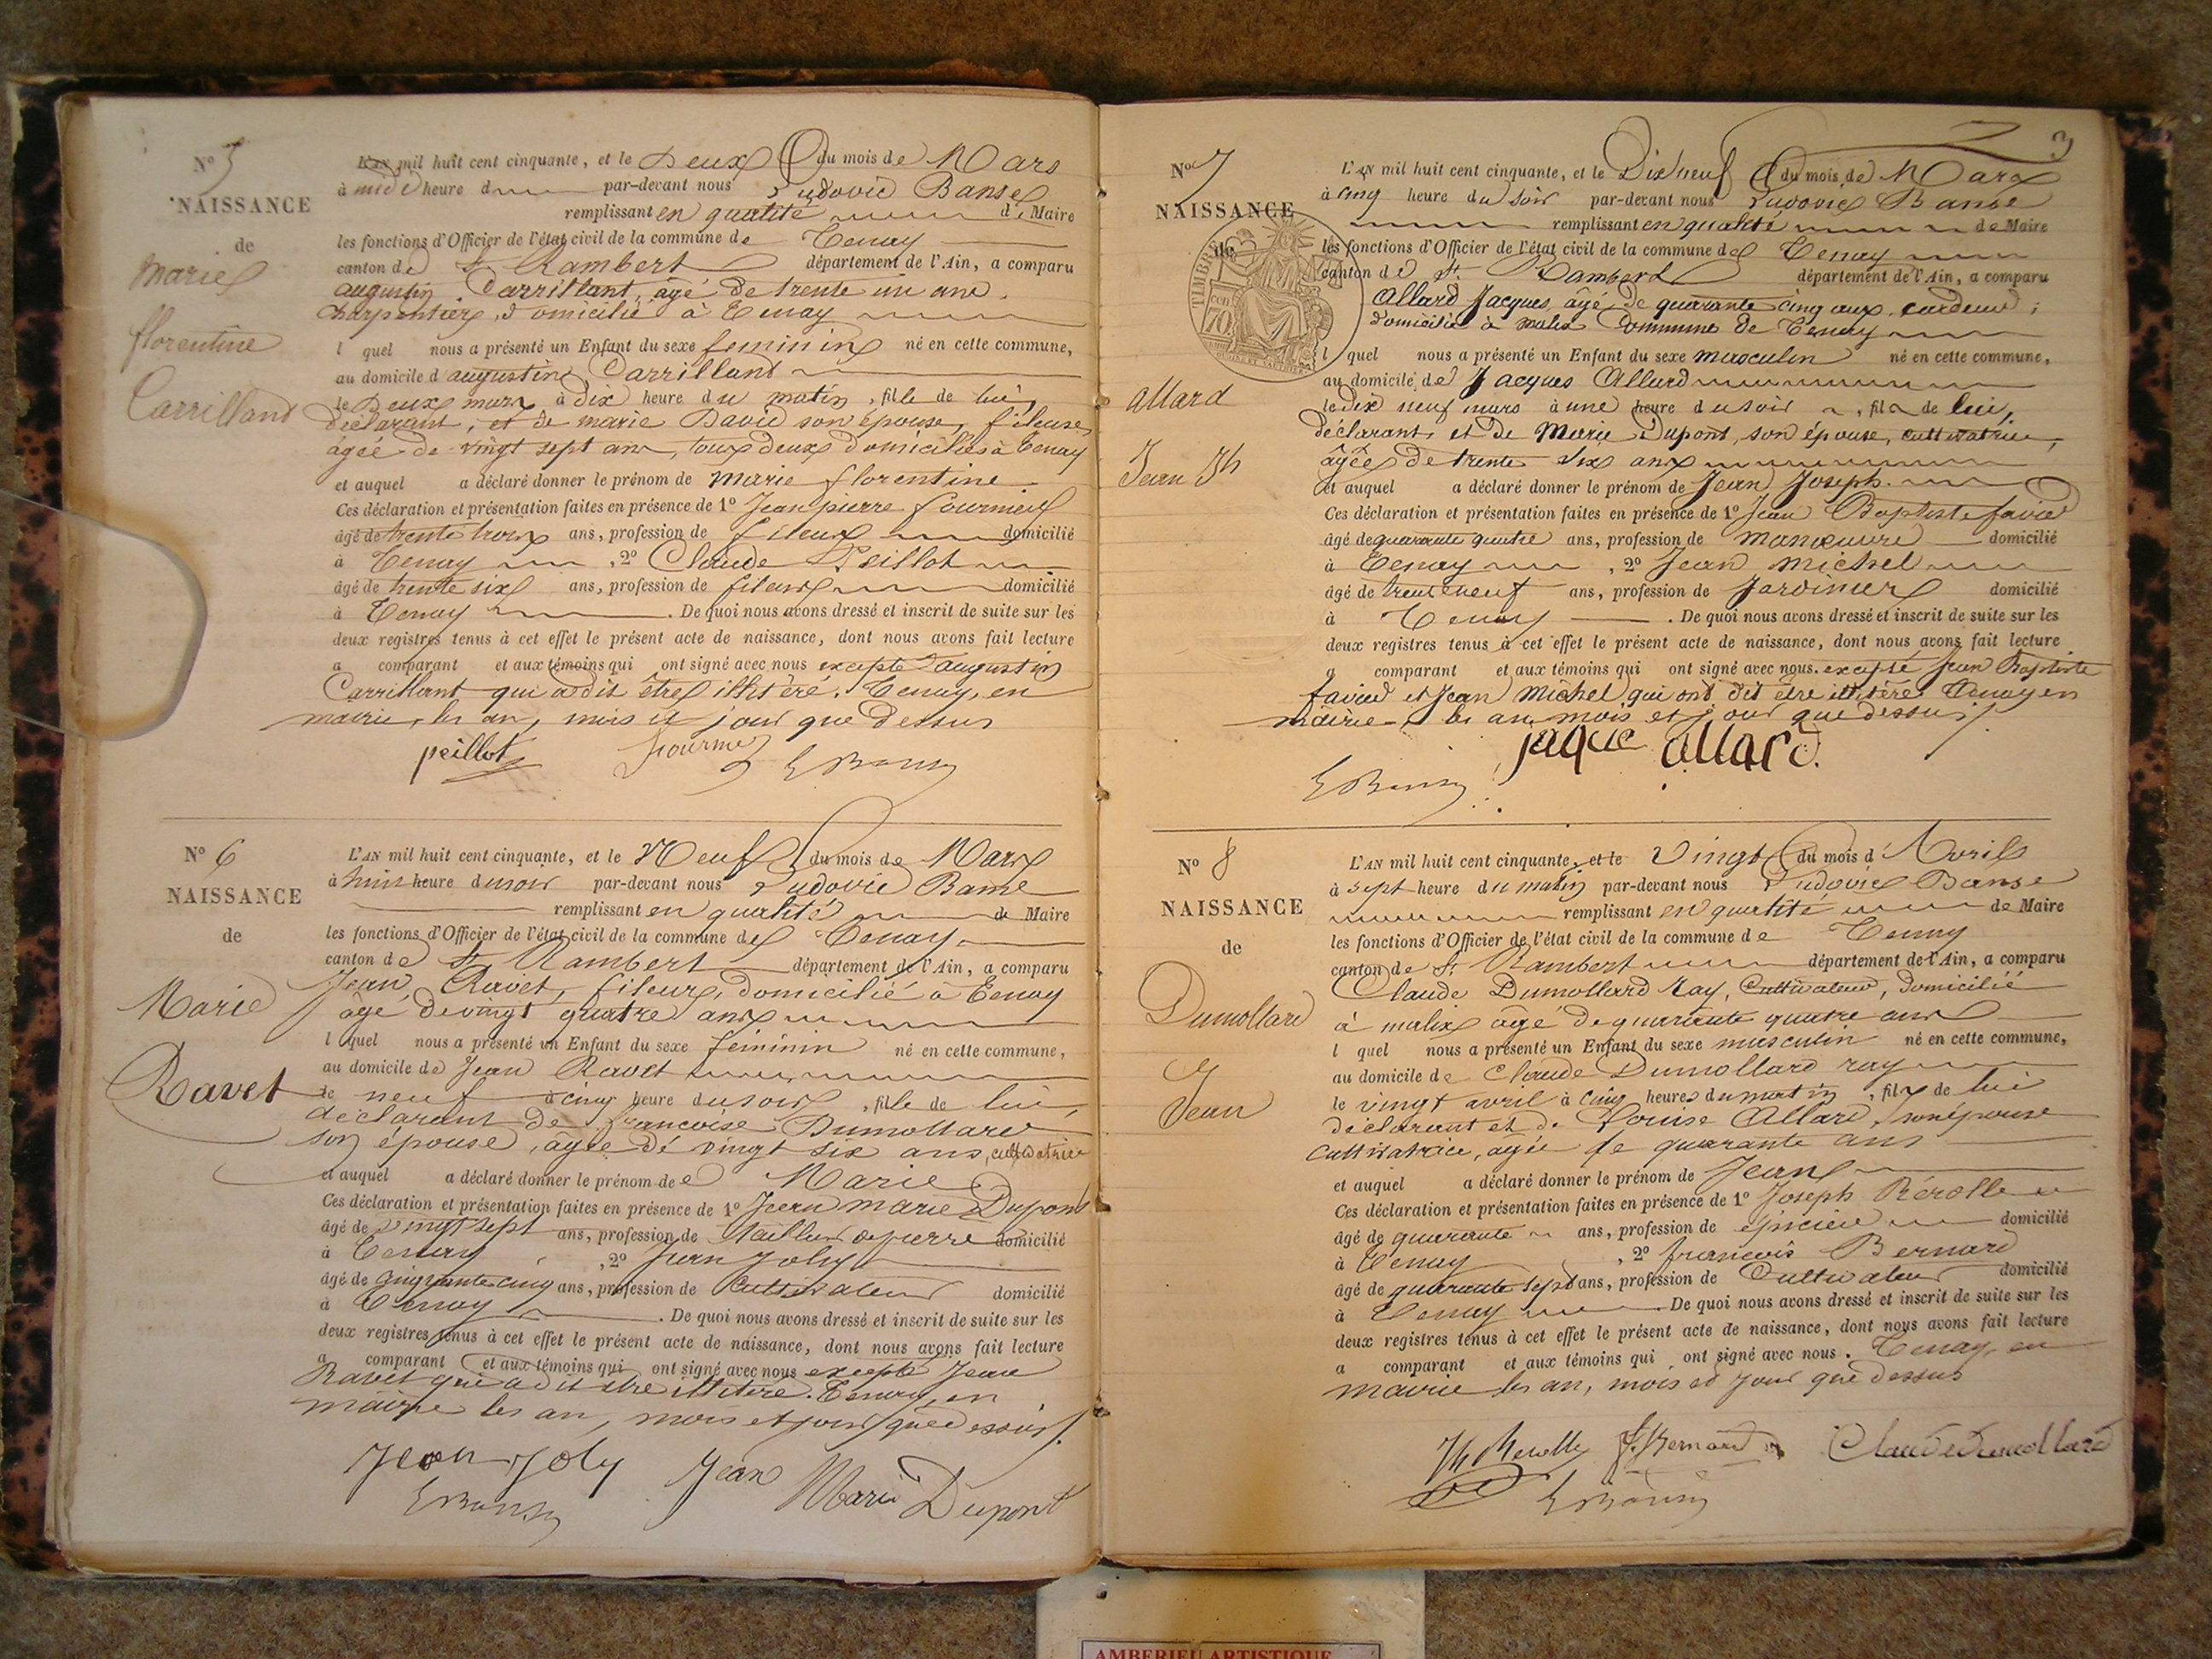 N° 5
NAISSANCE
de
Marie
florentine
Carrilland
L'AN mil huit cent cinquante, et le Deux du mois de Mars
à midi heure d par-devant nous Ludovic Banse
remplissant en qualité de Maire
les fonctions d'Officier de l'état civil de la commune de Tenay
canton de St Rambert département de l'Ain, a comparu
augustin Carrillant, agé de trente un ans.
charpentier, domicilié à Tenay
l quel nous a présenté un Enfant du sexe feminin né en cette commune,
au domicile d augustin Carrilland
le Deux mars à dix heure du matin, fille de lui,
déclarant, et de marie David son épouse, fileuse,
âgée de vingt sept ans, tous deux domiciliés à Tenay
et auquel a déclaré donner le prénom de marie florentine.
Ces déclaration et présentation faites en présence de 1° Jean pierre fournier
âgé de trente trois ans, profession de fileur domicilié
à Tenay , 2° Claude Peillot
âgé de trente six ans, profession de fileur domicilié
à Tenay . De quoi nous avons dressé et inscrit de suite sur les
deux registres tenus à cet effet le présent acte de naissance, dont nous avons fait lecture
a comparant et aux témoins qui ont signé avec nous excepté augustin
Carrillant qui a dit être illitéré. Tenay, en
mairie, les an, mois et jour que dessus
peillot
N° 6
NAISSANCE
de
Marie
Ravet
L'AN mil huit cent cinquante, et le Neuf du mois de Mars
à huit heure du soir par-devant nous Ludovic Banse
remplissant en qualité de Maire
les fonctions d'Officier de l'état civil de la commune de Tenay
canton de St Rambert département de l'Ain, a comparu
Jean Ravet, fileur, domicilié à Tenay
âgé de vingt quatre ans
l quel nous a présenté un Enfant du sexe féminin né en cette commune,
au domicile de Jean Ravet
le neuf à cinq heure du soir, fille de lui,
déclarant de françoise Dumollard
son épouse, agée de vingt six ans, cultivatrice
et auquel a déclaré donner le prénom de Marie
Ces déclaration et présentation faites en présence de 1° Jean marie Dupont
âgé de vingt sept ans, profession de tailleur de pierre domicilié
à Tenay , 2° Jean Joly
âgé de cinquante cinq ans, profession de Cultivateur domicilié
à Tenay . De quoi nous avons dressé et inscrit de suite sur les
deux registres tenus à cet effet le présent acte de naissance, dont nous avons fait lecture
a comparant et aux témoins qui ont signé avec nous excepté Jean
Ravet qui a dit être illitéré. Tenay, en
mairie les an, mois et jour que dessus.
Jean joly Jean Marie Dupont
3
N° 7
NAISSANCE
de
TIMBRE
70
allard
Jean Jh
L'AN mil huit cent cinquante, et le Dix neuf du mois de Mars
à cinq heure du soir par-devant nous Ludovic Banse
remplissant en qualité de Maire
les fonctions d'Officier de l'état civil de la commune de Tenay
canton de St Rambert département de l'Ain, a comparu
Allard Jacques, âgé de quarante cinq ans, cardeur,
domicilié à malix Commune de Tenay
l quel nous a présenté un Enfant du sexe masculin né en cette commune,
au domicile de Jacques Allard
le dix neuf mars à une heure du soir, fils de lui,
déclarant, et de Marie Dupont, son épouse, cultivatrice,
âgée de trente six ans
et auquel a déclaré donner le prénom de Jean Joseph.
Ces déclaration et présentation faites en présence de 1° Jean Baptiste favier
âgé de quarante quatre ans, profession de manœuvre domicilié
à Tenay , 2° Jean michel
âgé de trente neuf ans, profession de Jardinier domicilié
à Tenay . De quoi nous avons dressé et inscrit de suite sur les
deux registres tenus à cet effet le présent acte de naissance, dont nous avons fait lecture
a comparant et aux témoins qui ont signé avec nous. excepté Jean Baptiste
favier et Jean Michel qui ont dit être illitéré Tenay en
mairie les an, mois et jour que dessus.
jaque allard.
N° 8
NAISSANCE
de
Dumollard
Jean
L'AN mil huit cent cinquante, et le Vingt du mois d'Avril
à sept heure du matin par-devant nous Ludovic Banse
remplissant en qualité de Maire
les fonctions d'Officier de l'état civil de la commune de Tenay
canton de St Rambert département de l'Ain, a comparu
Claude Dumollard Ray, Cultivateur, domicilié
à malix âgé de quarante quatre ans
l quel nous a présenté un Enfant du sexe masculin né en cette commune,
au domicile de Claude Dumollard ray
le vingt avril à cinq heures du matin, fils de lui
déclarant et de Louise Allard, son épouse
cultivatrice, agée de quarante ans
et auquel a déclaré donner le prénom de Jean
Ces déclaration et présentation faites en présence de 1° Joseph Rérolle
âgé de quarante ans, profession de épicier domicilié
à Tenay , 2° françois Bernard
âgé de quarante sept ans, profession de Cultivateur domicilié
à Tenay . De quoi nous avons dressé et inscrit de suite sur les
deux registres tenus à cet effet le présent acte de naissance, dont nous avons fait lecture
a comparant et aux témoins qui ont signé avec nous. Tenay, en
mairie les an, mois et jour que dessus
Jh Rerolle f. Bernard Claude Dumollard
AMBERIEU ARTISTIQUE